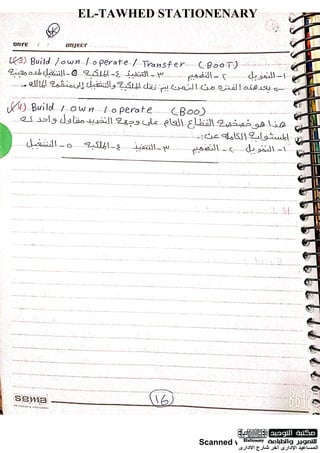 EL-TAWHED STATIONENARY
DATE / / SUBJECT
(3) Build / own / operate / Transfer (BOOT)
١- التمويل ٢- التصميم ٣- التنفيذ ٤- الملكية ٥- التشغيل لمدة معينة
بعد هذه الفترة من الزمن يتم نقل الملكية والتشغيل إلى منظمة المالك.
(4) Build / own / operate (BOO)
هذا هو خصخصة القطاع العام على وجه التحديد مقاول واحد له
المسئولية الكاملة عن:-
١- التمويل ٢- التصميم ٣- التنفيذ ٤- الملكية ٥- التشغيل
sema
16
مكتبة التوحيد
Stationery
للتصوير والطباعة
Scanned
المساعيد الإدارى آخر شارع الإدارى